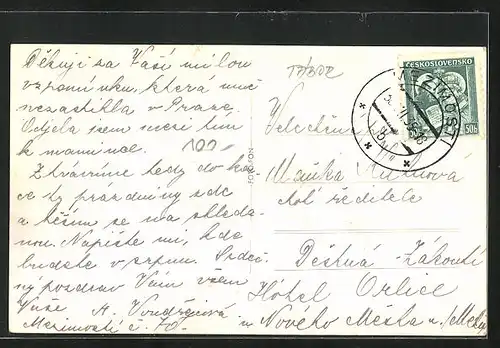 Děkuji za Vaši milou
vzpomínku, která mne
nezastihla v Praze.
Odjela jsem mezi tím
k mamince.
Ztrávíme tedy do konce
ty prázdniny zde
a těším se na shleda-
nou. Napište mi, kde
budete v srpnu. Srdeč-
ný pozdrav Vám všem
Vaše A.
Mezimostí č. 70.
100
TÁBOR
ČESKOSLOVENSKO
50h
MEZIMOSTÍ
Velectěná
Mařka
ředitele
Deštná - Zákoutí
Hôtel Orlice
u Nového Města n./Met.